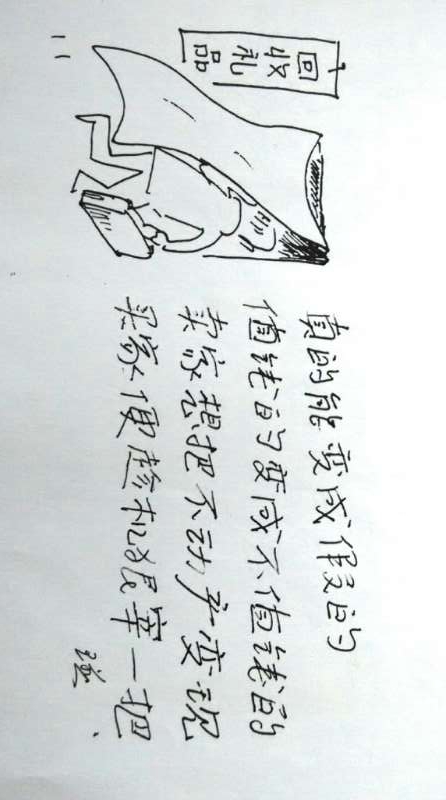 回收礼品
真的能变成假的
值钱的变成不值钱的
卖家想把不动产变现
买家便趁机狠宰一把